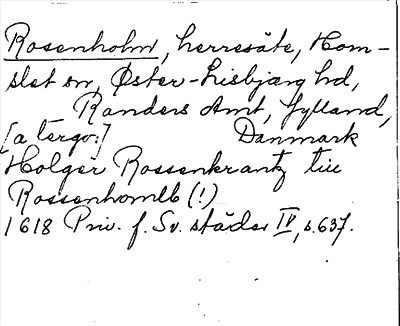 Rosenholm, herresäte, Hom-
slet sn, Øster-Lisbjærg hd,
Randers Amt, Jylland,
[a tergo:] Danmark
Holger Rossenkrantz till
Rossenhomlb (!)
1618 Priv. f. Sv. städer IV, s. 637.